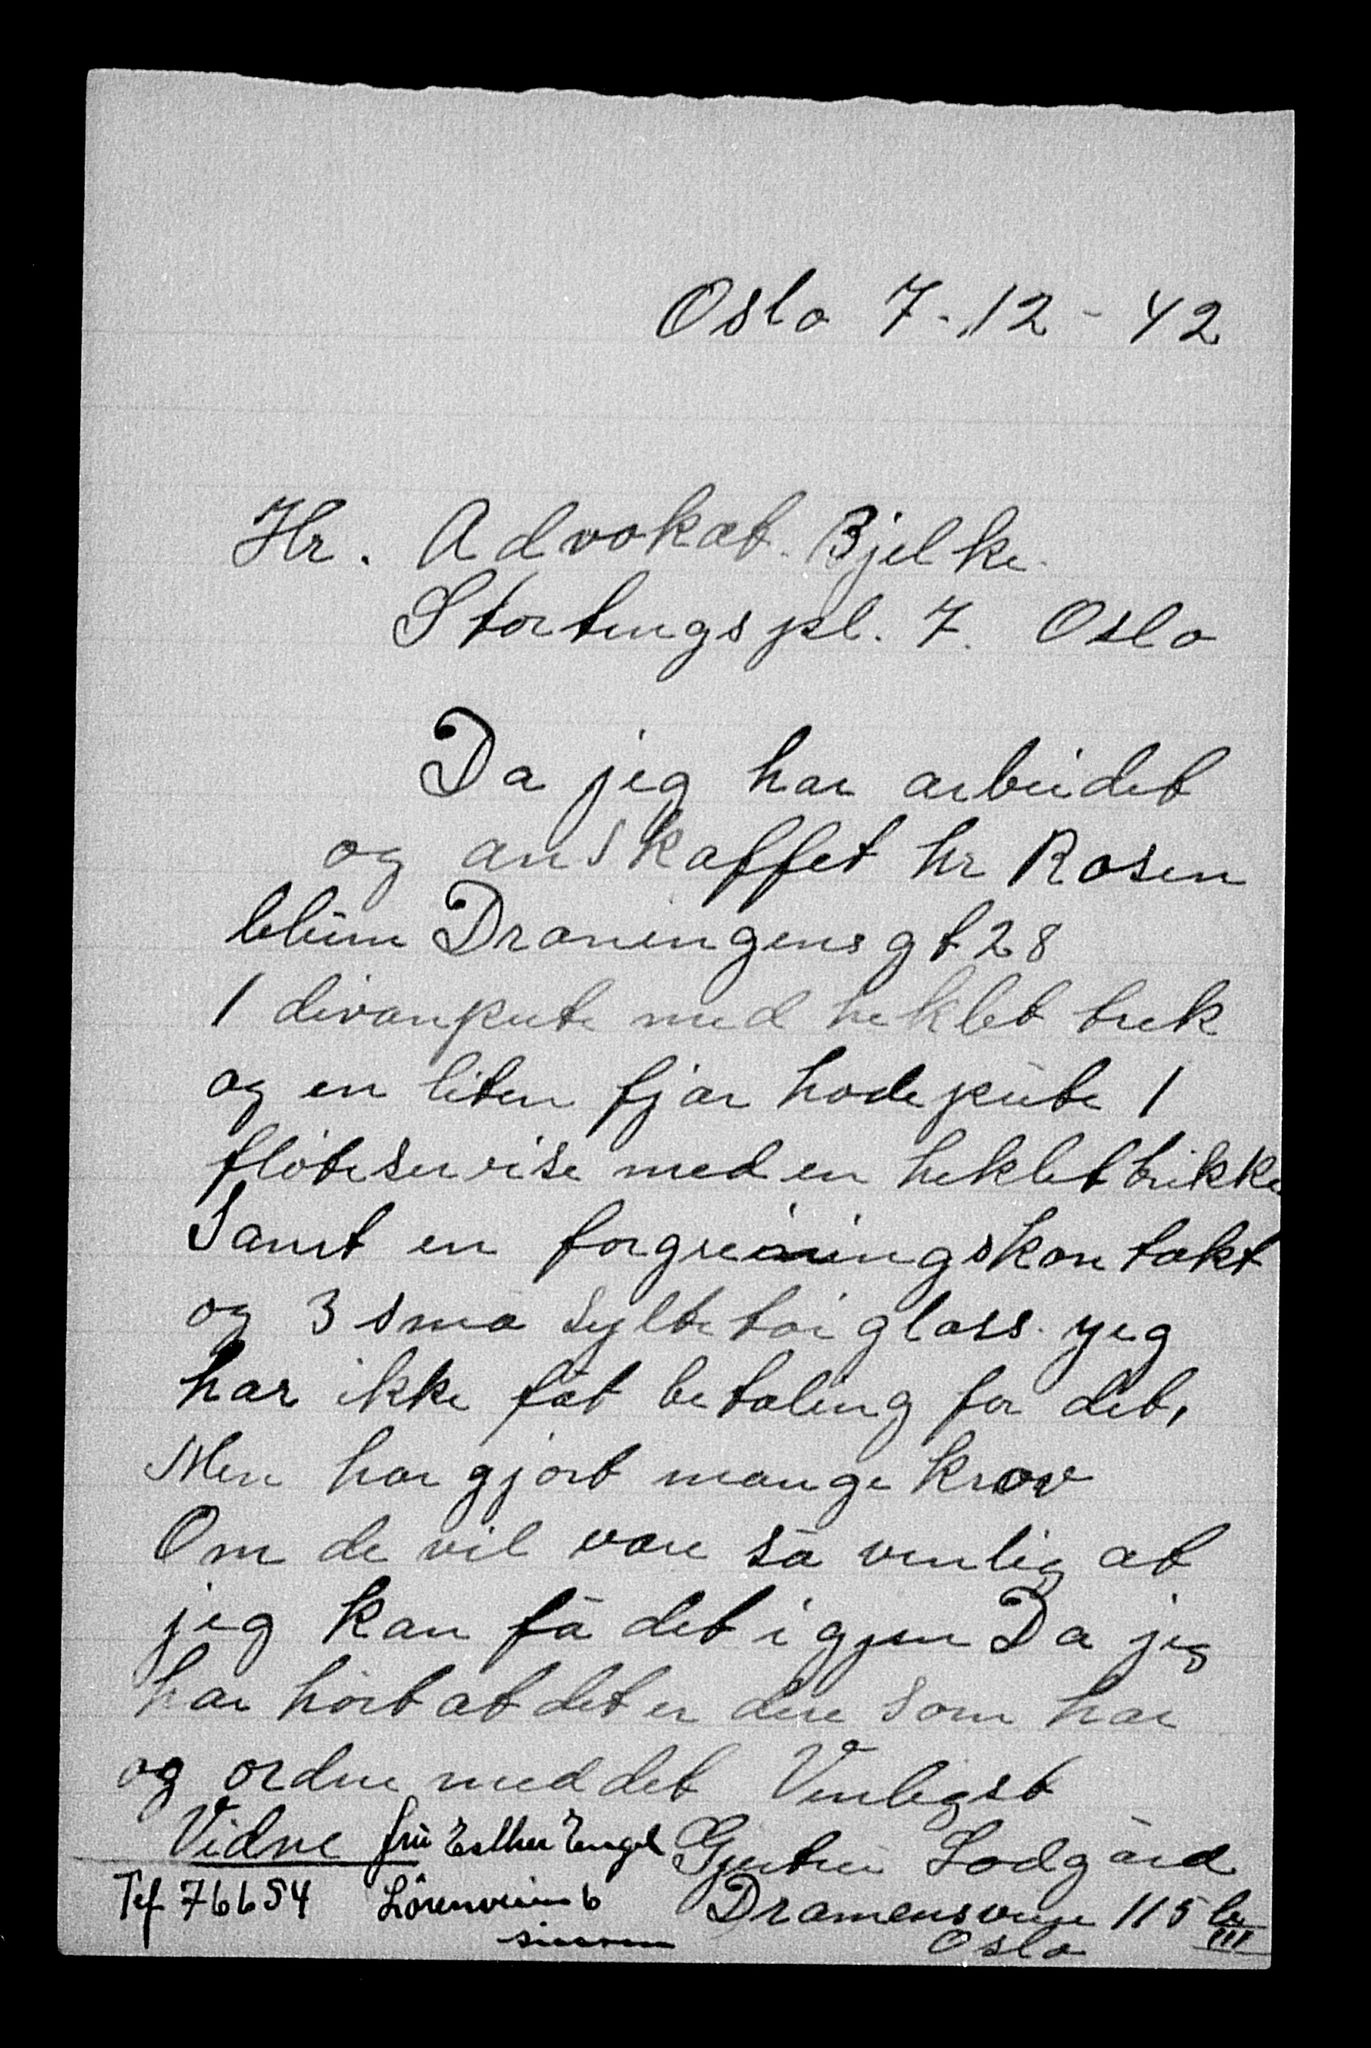 Oslo 7-12-42
Hr. Advokat Bjelke.
Stortingspl. 7. Oslo
Da jeg har arbeidet
og anskaffet hr Rosen
blum Droningensgt 28
1 divanpute med heklet trek
og en liten fjær hodepute 1
fløteservise med en heklet brikke
Samt en forgreiningskontakt
og 3 små syltetøi glass. jeg
har ikke fåt betaling for det,
Men har gjort mange krav
Om de vil være så venlig at
jeg kan få det igjen Da jeg
har hørt at det er dere som har
og ordne med det Venligst
Vidne fru Esther Engel Lodgård
Tlf 76654 Lørenveien 6 Dramensveien 115 b III
sinsen Oslo